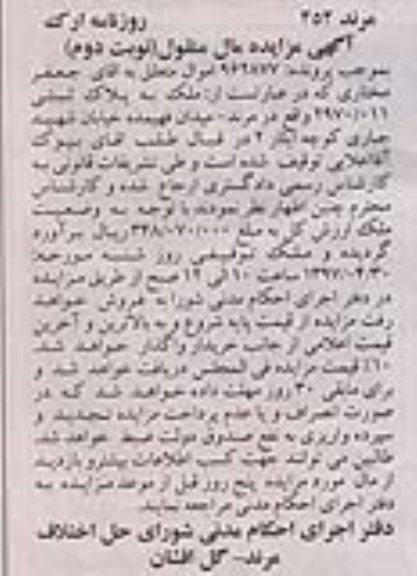 روزنامه ارک مرند ۲۵۲
آگهی مزایده مال منقول(نوبت دوم)
بموجب پرونده: ۹۶۲۸۷۷ اموال متعلق به آقای جعفر
مختاری که در عبارتست از: ملک به پلاک ثبتی
۲۹۷۰/۰۱۱ واقع در مرند- میدان فهمیده خیابان شهید
جباری کوچه ایثار ۲ در قبال طلب آقای بیوک
آقاعلایی توقیف شده است و طی تشریفات قانونی به
کارشناس رسمی دادگستری ارجاع شده و کارشناس
محترم چنین اظهار نظر نمودند با توجه به وضعیت
ملک ارزش کل به مبلغ ۳۴۸/۰۷۰/۰۰۰ ریال برآورد
گردیده و ملک توقیفی روز شنبه مورخه:
۱۳۹۷/۰۴/۳۰ ساعت ۱۰ الی ۱۲ صبح از طریق مزایده
در دفتر اجرای احکام مدنی شورا به فروش خواهد
رفت مزایده از قیمت پایه شروع و به بالاترین و آخرین
قیمت اعلامی از جانب خریدار واگذار خواهد شد.
۱۰٪ قیمت مزایده فی المجلس دریافت خواهد شد و
برای مابقی ۳۰ روز مهلت داده خواهد شد که در
صورت انصراف و یا عدم پرداخت مزایده تجدید و
سپرده واریزی به نفع صندوق دولت ضبط خواهد شد.
طالبین می توانند جهت کسب اطلاعات بیشتر و بازدید
از مال مورد مزایده پنج روز قبل از موعد مزایده به
دفتر اجرای احکام مدنی مراجعه نمایند.
دفتر اجرای احکام مدنی شورای حل اختلاف
مرند- گل افشان